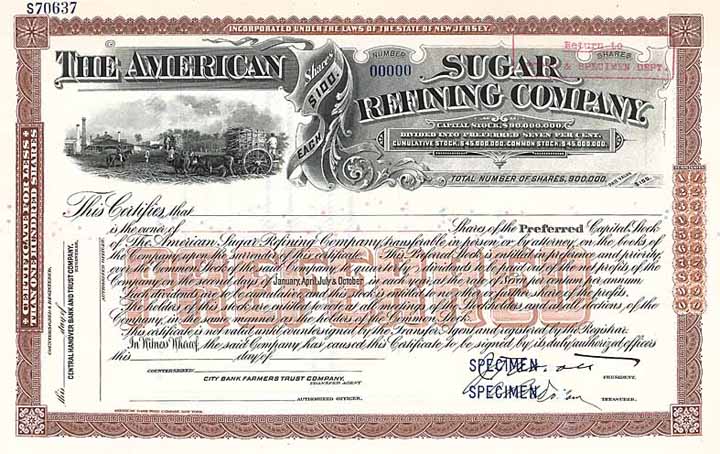 S70637
INCORPORATED UNDER THE LAWS OF THE STATE OF NEW JERSEY.
Return to
& SPECIMEN DEPT.
NUMBER
00000
SHARES
THE AMERICAN SUGAR
REFINING COMPANY.
Shares
$100.
EACH
CAPITAL STOCK, $90,000,000.
DIVIDED INTO PREFERRED SEVEN PER CENT.
CUMULATIVE STOCK, $45,000,000. COMMON STOCK, $45,000,000.
TOTAL NUMBER OF SHARES, 900,000. PAR VALUE $100.
CERTIFICATE FOR LESS
THAN ONE HUNDRED SHARES
PREFERRED
This Certifies, that
is the owner of Shares of the Preferred Capital Stock
of The American Sugar Refining Company, transferable in person or by attorney, on the books of
the Company upon the surrender of this certificate. This Preferred Stock is entitled in preference and priority
over the Common Stock of said Company to quarterly dividends to be paid out of the net profits of the
Company on the second days of January, April, July & October in each year, at the rate of Seven per cent per annum.
Such dividends are to be cumulative and this is entitled to no other or further share of the profits.
The holders of this Stock are entitled to vote at all meetings of the
Company, in as the holders of the Common Stock.
This certificate is not valid until countersigned by the Transfer Agent and registered by the Registrar.
In Witness Whereof, the said Company has caused this Certificate to be signed by its duly authorized officers
this day of
COUNTERSIGNED:
CITY BANK FARMERS TRUST COMPANY,
TRANSFER AGENT
AUTHORIZED OFFICER.
SPECIMEN
PRESIDENT.
SPECIMEN
TREASURER.
COUNTERSIGNED & REGISTERED,
this day of
CENTRAL HANOVER BANK AND TRUST COMPANY,
REGISTRAR
AUTHORIZED OFFICER
AMERICAN BANK NOTE COMPANY, NEW YORK.